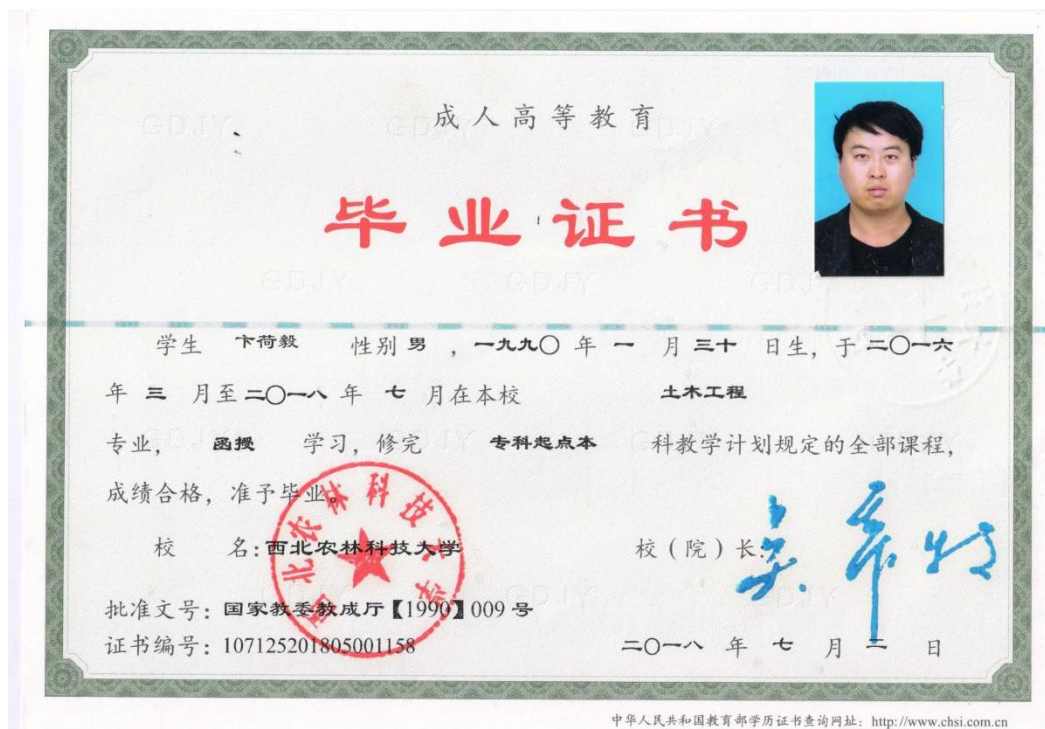 成人高等教育
毕业证书
学生 卞荷毅 性别 男 ，一九九〇 年 一 月 三十 日生，于 二〇一六
年 三 月至 二〇一八 年 七 月在本校 土木工程
专业， 函授 学习，修完 专科起点本 科教学计划规定的全部课程，
成绩合格，准予毕业。
校 名：西北农林科技大学 校（院）长：吴普特
批准文号：国家教委教成厅【1990】009 号
证书编号：107125201805001158 二〇一八 年 七 月 二 日
西北农林科技大学
GDJY
中华人民共和国教育部学历证书查询网址：http://www.chsi.com.cn